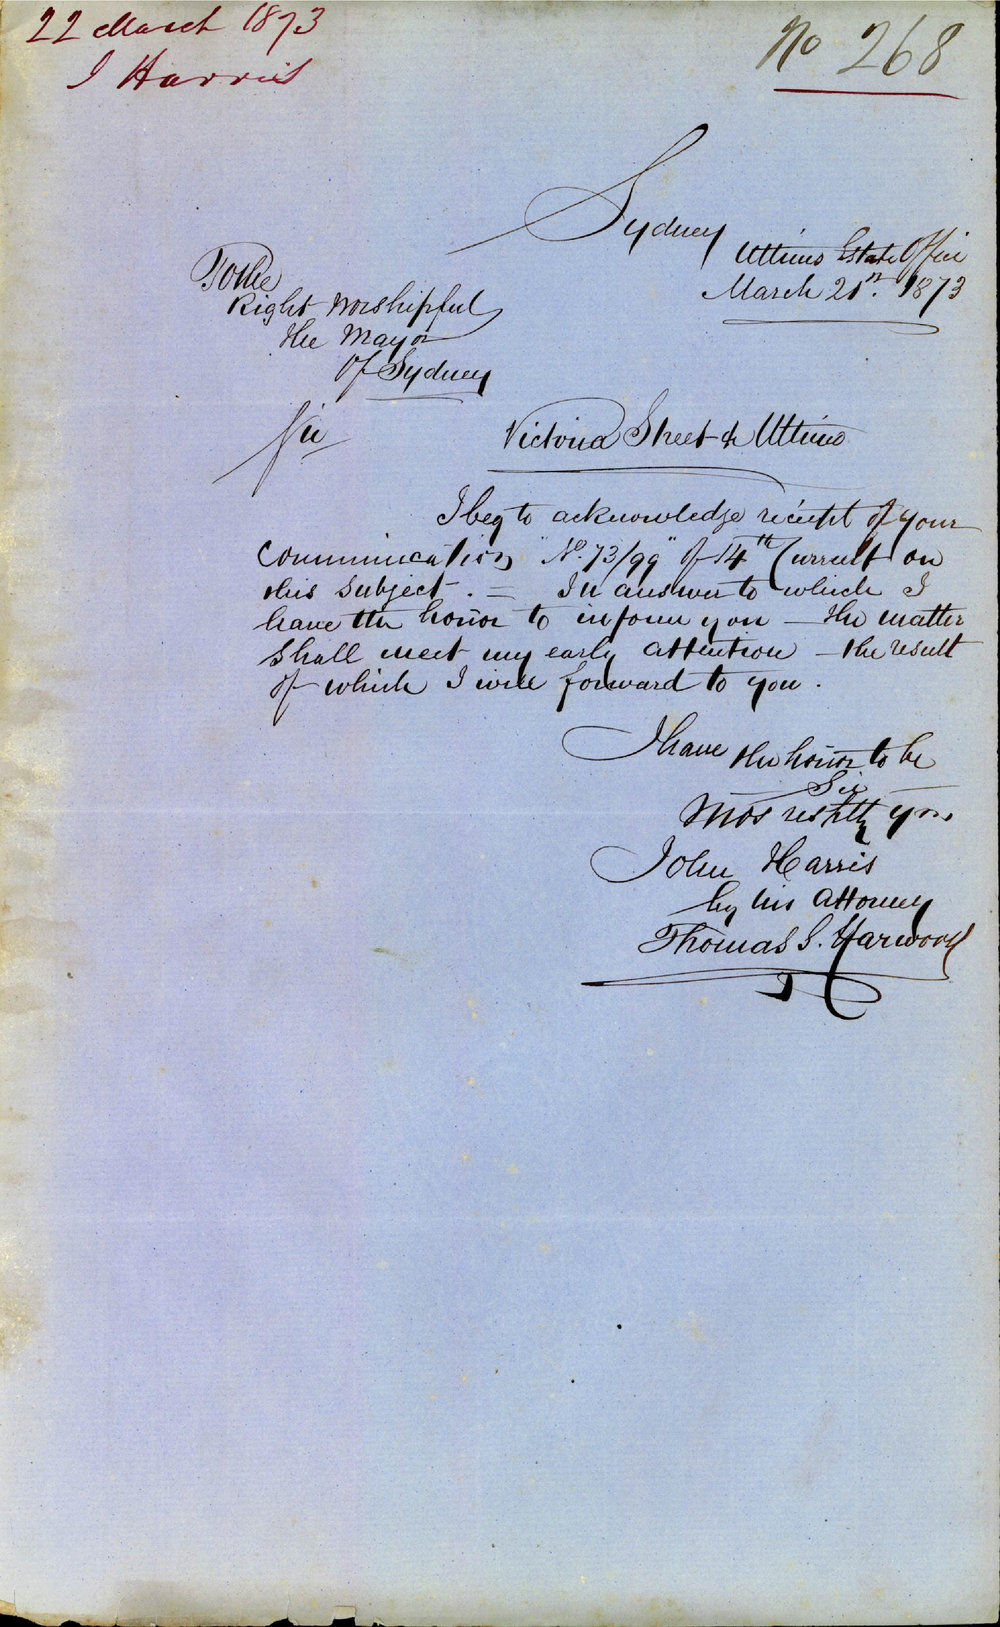 22 March 1873
J Harris
No 268
Sydney
Ultimo Estate Office
March 21st. 1873
To the
Right Worshipful
the Mayor
Of Sydney
Sir
Victoria Street & Ultimo
I beg to acknowledge receipt of your
Communication "No. 73/99" of 14th Current on
this subject. = In answer to which I
have the honor to inform you — the matter
shall meet my early attention — the result
of which I will forward to you.
I have the honor to be
Sir
Mos respttly yrs
John Harris
by his Attorney
Thomas S. Harwood